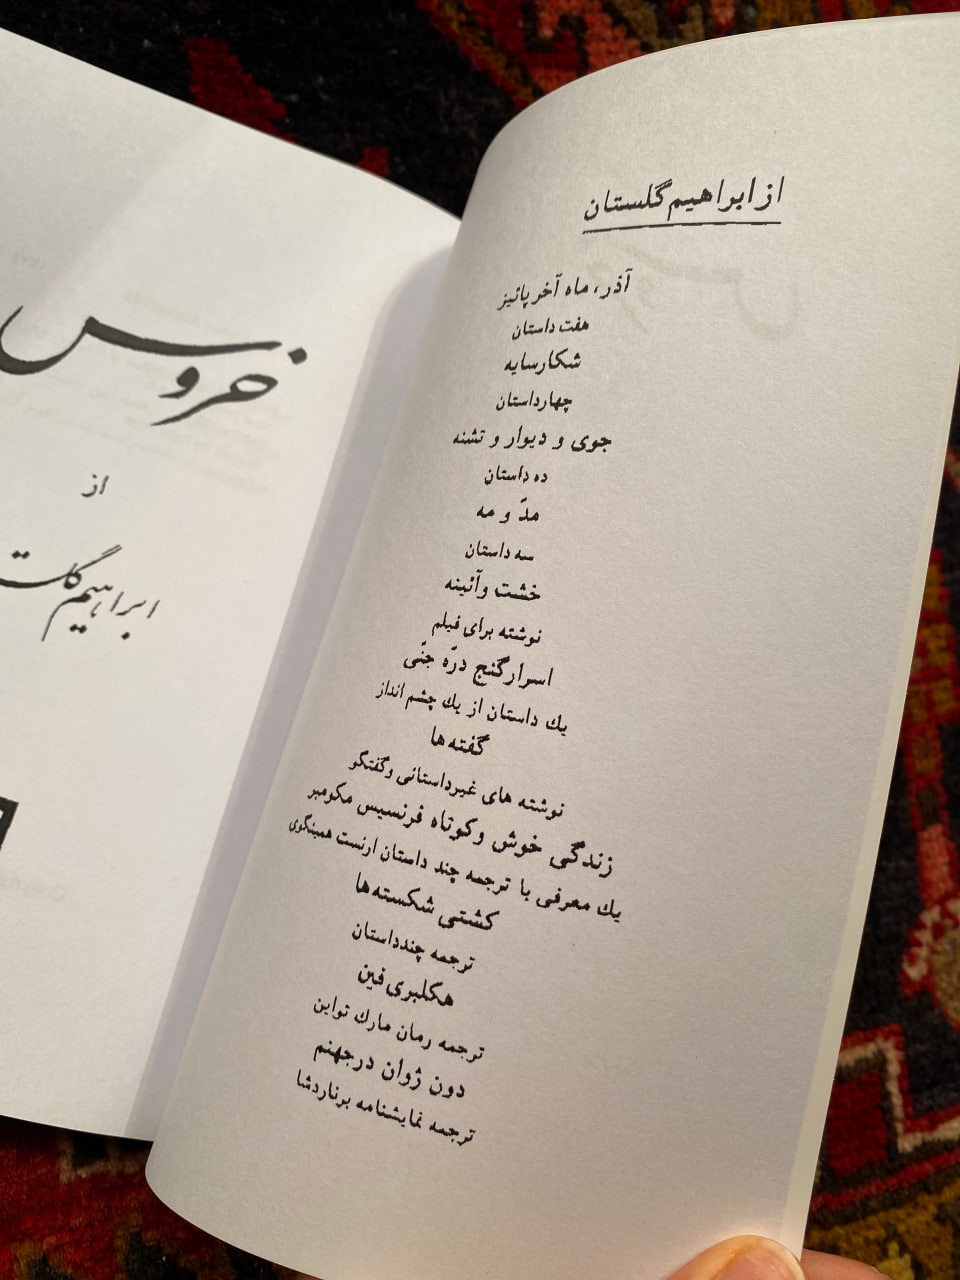 از ابراهیم گلستان
آذر، ماه آخر پائیز
هفت داستان
شکار سایه
چهار داستان
جوی و دیوار و تشنه
ده داستان
مدّ و مه
سه داستان
خشت و آئینه
نوشته برای فیلم
اسرار گنج درّه جنّی
یك داستان از یك چشم انداز
گفته ها
نوشته های غیرداستانی و گفتگو
زندگی خوش و کوتاه فرنسیس مکومبر
یك معرفی با ترجمه چند داستان ارنست همینگوی
کشتی شکسته ها
ترجمه چند داستان
هکلبری فین
ترجمه رمان مارك تواین
دون ژوان در جهنم
ترجمه نمایشنامه برناردشا
خروس
از
ابراهیم